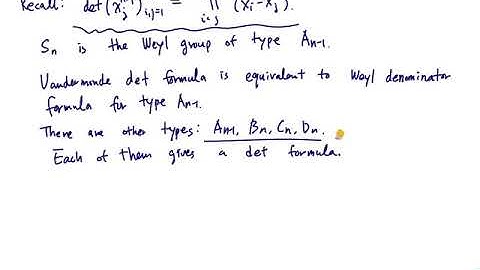 Recall: det(x_j^{i-1})_{i,j=1} = ∏_{i<j} (x_i - x_j).
S_n is the Weyl group of type A_{n-1}.
Vandermonde det formula is equivalent to Weyl denominator
formula for type A_{n-1}.
There are other types: A_{n-1}, B_n, C_n, D_n.
Each of them gives a det formula.